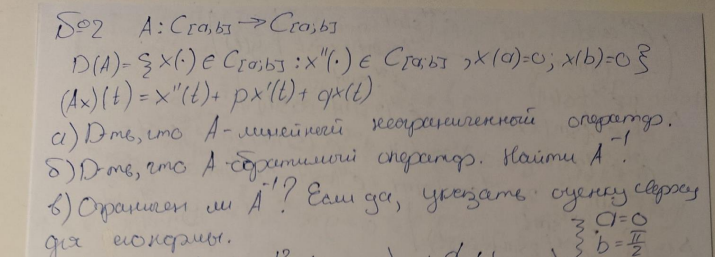 Б№2 A: C[a,b] → C[a,b]
D(A)= { x(·) ∈ C[a,b] : x''(·) ∈ C[a,b] , x(a)=0; x(b)=0 }
(Ax)(t) = x''(t) + px'(t) + qx(t)
а) D-ть, что A - линейный неограниченный оператор.
б) D-ть, что A - обратимый оператор. Найти A⁻¹.
в) Ограничен ли A⁻¹? Если да, указать оценку сверху
для его нормы.
} a=0
} b=π/2